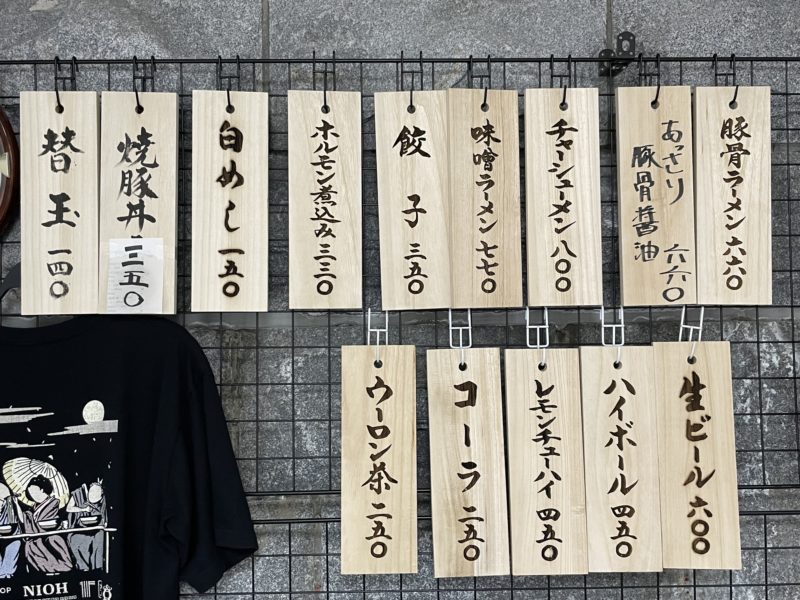 豚骨ラーメン 六六〇
あっさり
豚骨醤油 六六〇
チャーシューメン 八〇〇
味噌ラーメン 七七〇
餃子 三五〇
ホルモン煮込み 三三〇
白めし 一五〇
焼豚丼 三五〇
替玉 一四〇
生ビール 六〇〇
ハイボール 四五〇
レモンチューハイ 四五〇
コーラ 二五〇
ウーロン茶 二五〇
OP NIOH